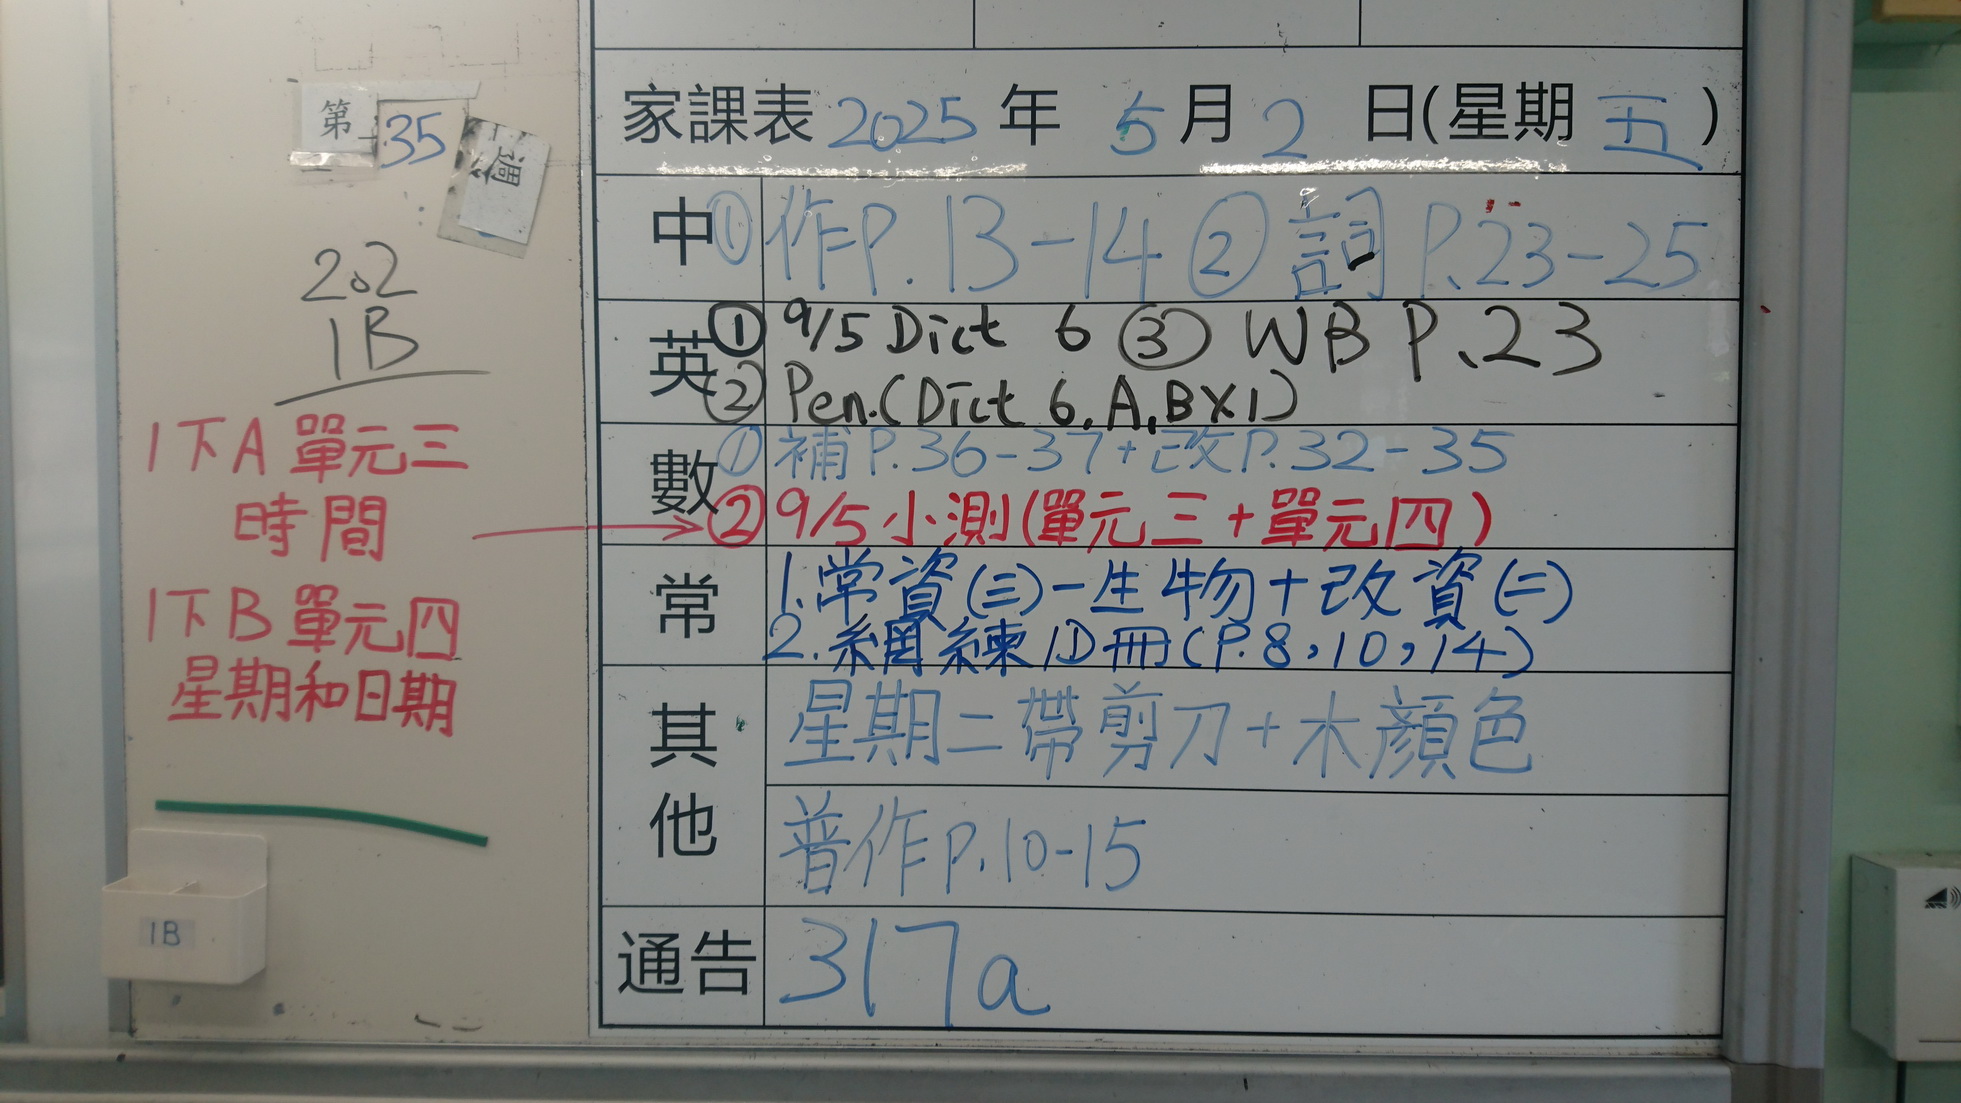 第35週
202
1B
1下A 單元三
時間
1下B 單元四
星期和日期
1B
家課表 2025 年 5 月 2 日(星期 五)
中 ① 作P.13-14 ② 詞 P.23-25
英 ① 9/5 Dict 6 ③ WB P.23
② Pen.(Dict 6.A,B×1)
數 ① 補P.36-37+改P.32-35
② 9/5 小測(單元三+單元四)
常 1.常資(三)-生物+改資(二)
2.網練1D冊(P.8,10,14)
其他 星期二帶剪刀+木顏色
普作P.10-15
通告 317a